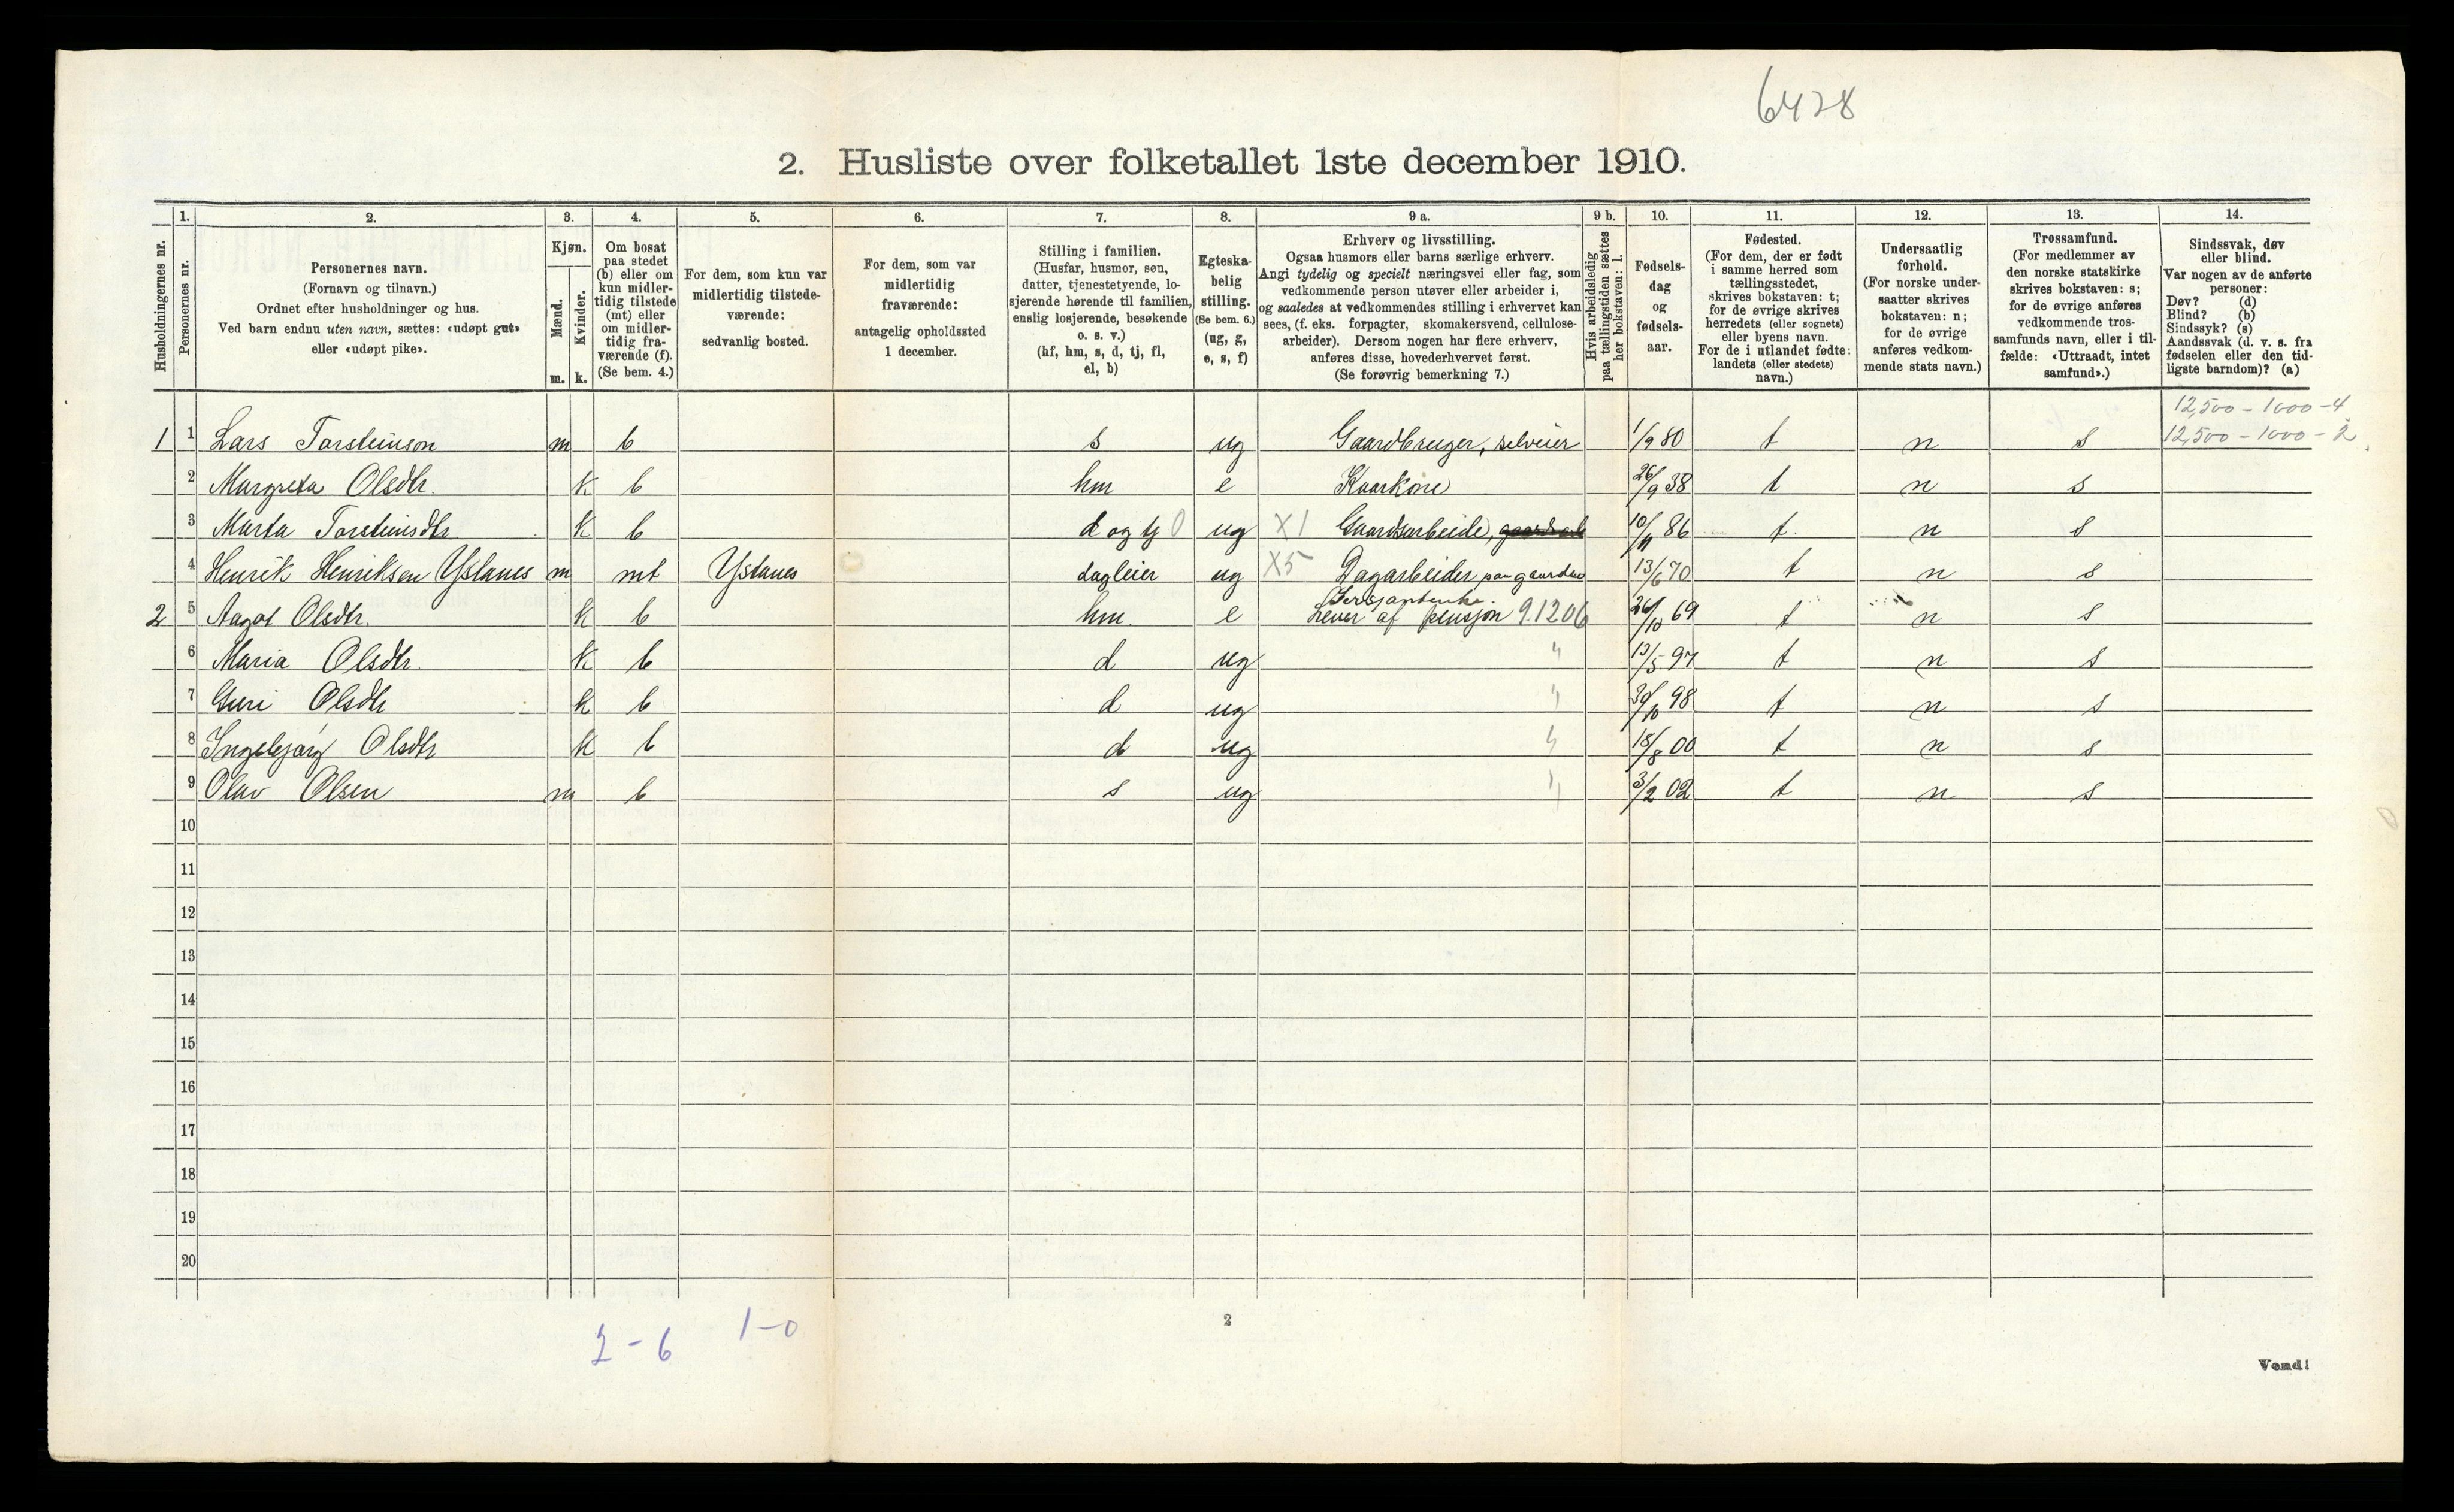 6428
2. Husliste over folketallet 1ste december 1910.
Husholdningernes nr.
1. Personernes nr.
2. Personernes navn. (Fornavn og tilnavn.) Ordnet efter husholdninger og hus. Ved barn endnu uten navn, sættes: «udøpt gut» eller «udøpt pike».
3. Kjøn. Mænd. m. Kvinder. k.
4. Om bosat paa stedet (b) eller om kun midlertidig tilstede (mt) eller om midlertidig fraværende (f). (Se bem. 4.)
5. For dem, som kun var midlertidig tilstedeværende: sedvanlig bosted.
6. For dem, som var midlertidig fraværende: antagelig opholdssted 1 december.
7. Stilling i familien. (Husfar, husmor, søn, datter, tjenestetyende, losjerende hørende til familien, enslig losjerende, besøkende o. s. v.) (hf, hm, s, d, tj, fl, el, b)
8. Egteskabelig stilling. (Se bem. 6.) (ug, g, e, s, f)
9 a. Erhverv og livsstilling. Ogsaa husmors eller barns særlige erhverv. Angi tydelig og specielt næringsvei eller fag, som vedkommende person utøver eller arbeider i, og saaledes at vedkommendes stilling i erhvervet kan sees, (f. eks. forpagter, skomakersvend, cellulosearbeider). Dersom nogen har flere erhverv, anføres disse, hovederhvervet først. (Se forøvrig bemerkning 7.)
9 b. Hvis arbeidsledig paa tællingstiden sættes her bokstaven: l.
10. Fødselsdag og fødselsaar.
11. Fødested. (For dem, der er født i samme herred som tællingsstedet, skrives bokstaven: t; for de øvrige skrives herredets (eller sognets) eller byens navn. For de i utlandet fødte: landets (eller stedets) navn.)
12. Undersaatlig forhold. (For norske undersaatter skrives bokstaven: n; for de øvrige anføres vedkommende stats navn.)
13. Trossamfund. (For medlemmer av den norske statskirke skrives bokstaven: s; for de øvrige anføres vedkommende trossamfunds navn, eller i tilfælde: «Uttraadt, intet samfund».)
14. Sindssvak, døv eller blind. Var nogen av de anførte personer: Døv? (d) Blind? (b) Sindssyk? (s) Aandssvak (d. v. s. fra fødselen eller den tidligste barndom)? (a)
12,500 - 1000 - 4
1 1 Lars Torsteinson m b s ug Gaardbruger, selveier 1/9 80 t n s 12,500 - 1000 - 2
2 Margreta Olsdtr. k b hm e Kaarkone 26/9 38 t n s
3 Marta Torsteinsdtr. k b d og tj 0 ug X1 Gaardsarbeide, 10/11 86 t. n s
4 Henrik Henriksen Ystanes m mt Ystanes dagleier ug X5 Dagarbeider paa gaarden 13/6 70 t n s
2 5 Aagot Olsdtr. k b hm e Lever af pensjon 9.1206 26/10 69 t n s
6 Maria Olsdtr. k b d ug " 13/5 97 t n s
7 Guri Olsdtr k b d ug " 30/10 98 t n s
8 Ingebjørg Olsdtr k b d ug " 18/8 00 t n s
9 Olav Olsen m b s ug " 3/2 02 t n s
10
11
12
13
14
15
16
17
18
19
20
2 - 6 1-0
2
Vend!